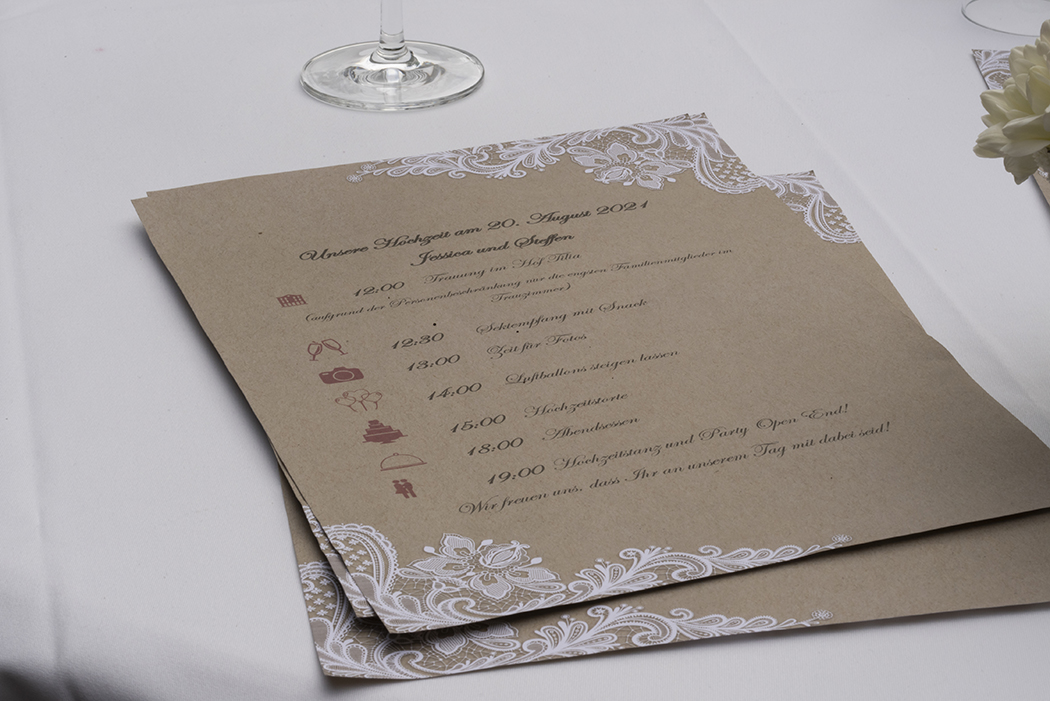 Unsere Hochzeit am 20. August 2021
Jessica und Steffen
12:00 Trauung im Hof Tilia
(aufgrund der Personenbeschränkung nur die engsten Familienmitglieder im
Trauzimmer)
12:30 Sektempfang mit Snack
13:00 Zeit für Fotos
14:00 Luftballons steigen lassen
15:00 Hochzeitstorte
18:00 Abendessen
19:00 Hochzeitstanz und Party Open End!
Wir freuen uns, dass Ihr an unserem Tag mit dabei seid!